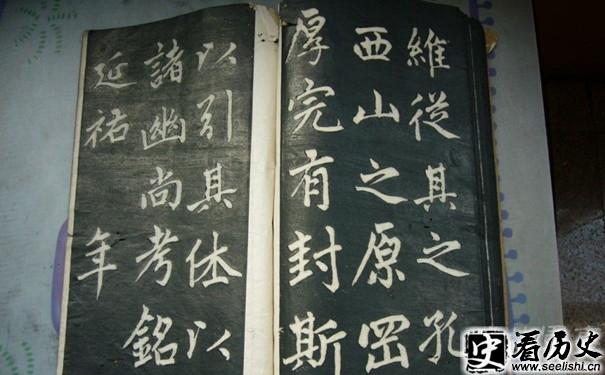 維從其之孔
西山之原岡
厚完有封斯
以引其休以
諸幽尚考銘
延祐 年
史 看历史
www.seelishi.cn